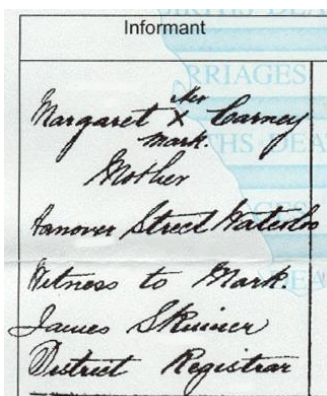 Informant
her
Margaret X Carney
mark.
Mother
Hanover Street Waterloo
Witness to Mark.
James Skinner
District Registrar